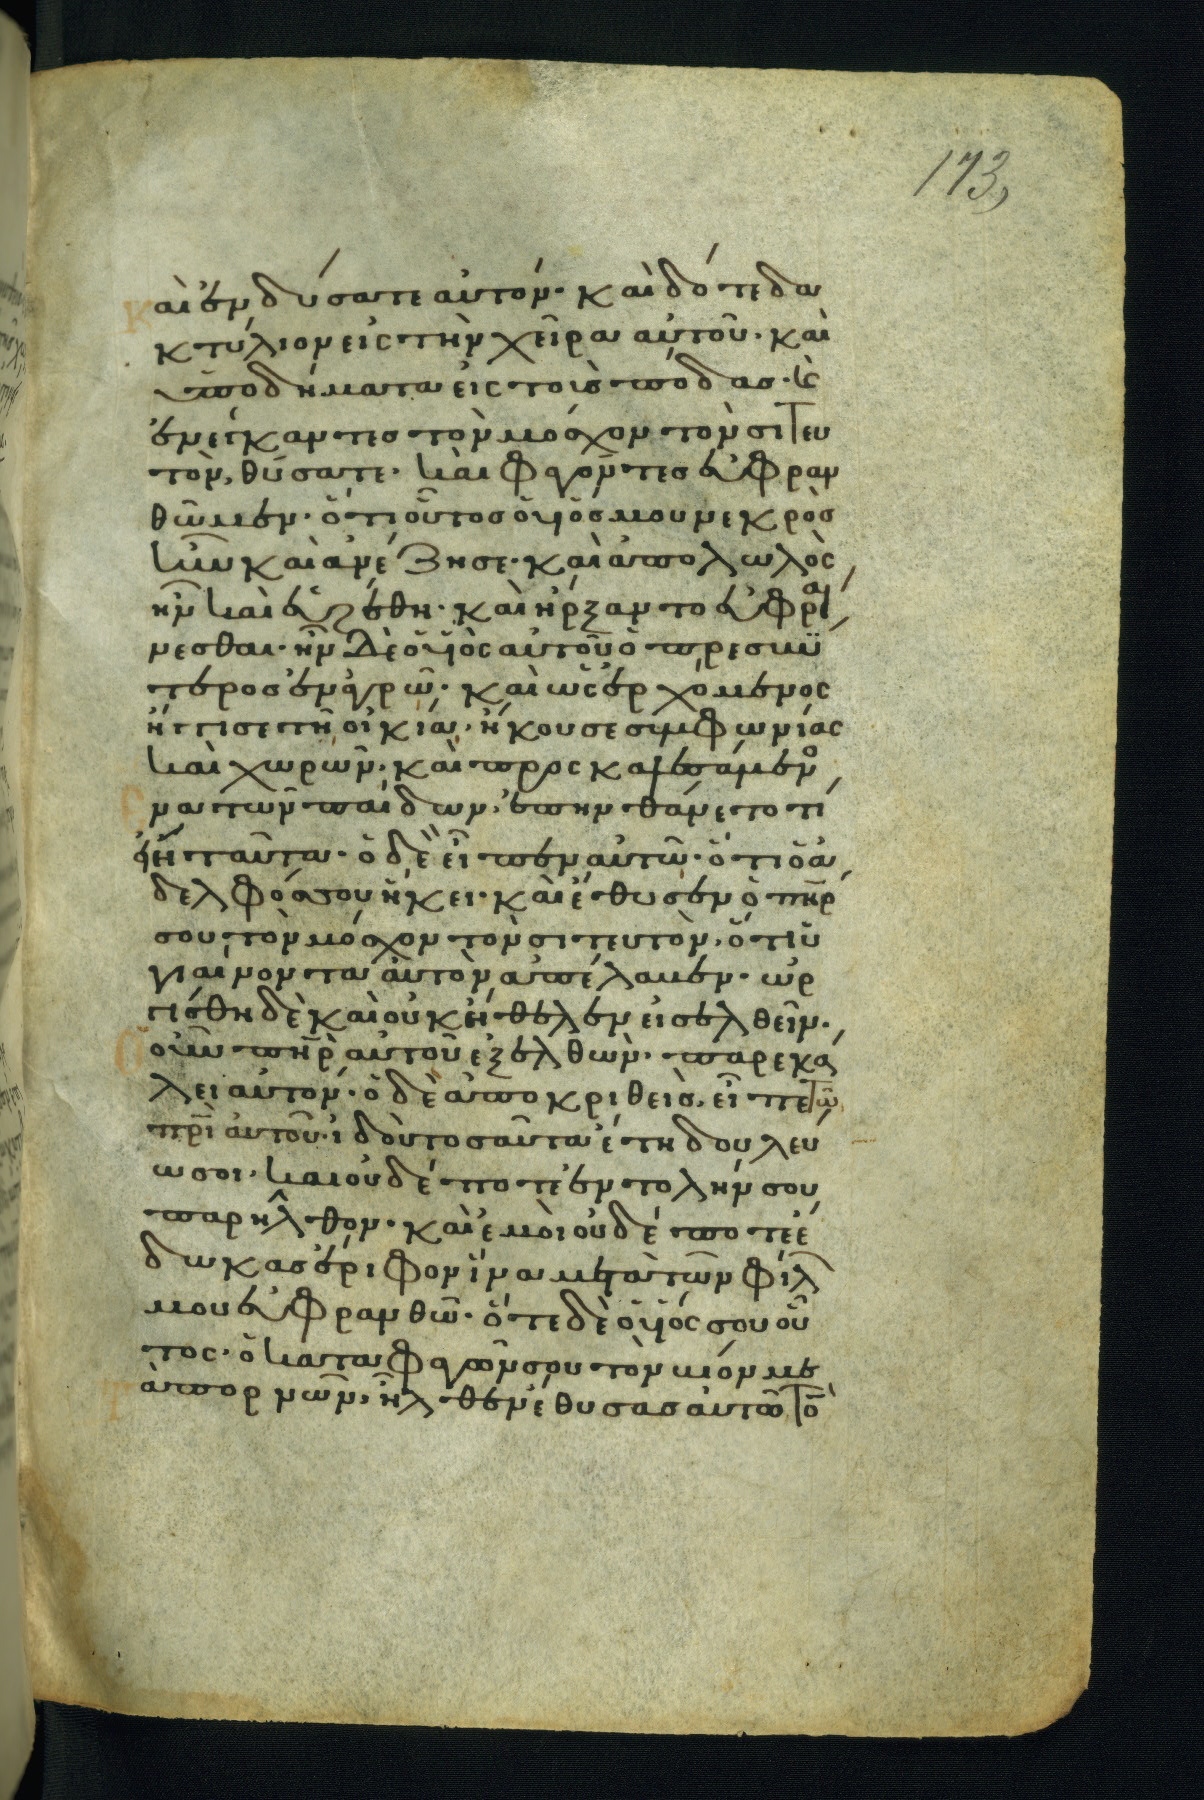 173,
Καὶ ἐνδύσατε αὐτόν· καὶ δότε δα
κτύλιον εἰς τὴν χεῖρα αὐτοῦ· καὶ
ὑποδήματα εἰς τοὺς πόδας· κ̀
ἐνείκαντες τὸν μόσχον τὸν σιτευ
τὸν, θύσατε· καὶ φαγόντες εὐφραν
θῶμεν· ὅτι οὗτος ὁ υἱός μου νεκρὸς
ἦν καὶ ἀνέζησε· καὶ ἀπολωλὸς
ἦν καὶ εὑρέθη· καὶ ἤρξαντο εὐφραί
νεσθαι· ἦν δὲ ὁ υἱὸς αὐτοῦ ὁ πρεσβύ
τερος ἐν ἀγρῶ· καὶ ὡς ἐρχόμενος
ἤγγισε τῆ οἰκία· ἤκουσε συμφωνίας
καὶ χωρῶν· καὶ προσκαλεσάμενο
ς ἕνα τῶν παίδων, ἐπηνθάνετο τί
εἴη ταῦτα· ὁ δὲ εἶπεν αὐτῶ· ὅτι ὁ ἀ
δελφός σου ἥκει· καὶ ἔθυσεν ὁ πηρ
σου τὸν μόσχον τὸν σιτευτὸν, ὅτι ὑ
γιαίνοντα αὐτὸν ἀπέλαβεν· ὠρ
γίσθη δὲ καὶ οὐκ ἤθελεν εἰσελθεῖν·
Ὁ οὖν πηρ αὐτοῦ ἐξελθὼν· παρεκά
λει αὐτόν· ὁ δὲ ἀποκριθεὶς, εἶπε τῶ
πρὶ αὐτοῦ· ἰδοὺ τοσαῦτα ἔτη δουλεύ
ω σοι· καὶ οὐδέποτε ἐντολήν σου
παρῆλθον· καὶ ἐμοὶ οὐδέποτε ἔ
δωκας ἔριφον ἵνα μετὰ τῶν φίλ
μου εὐφρανθῶ· ὅτε δὲ ὁ υἱός σου οὗ
τος· ὁ καταφαγών σου τὸν βίον με
τὰ πορνῶν, ἦλθεν ἔθυσας αὐτῶ τὸ